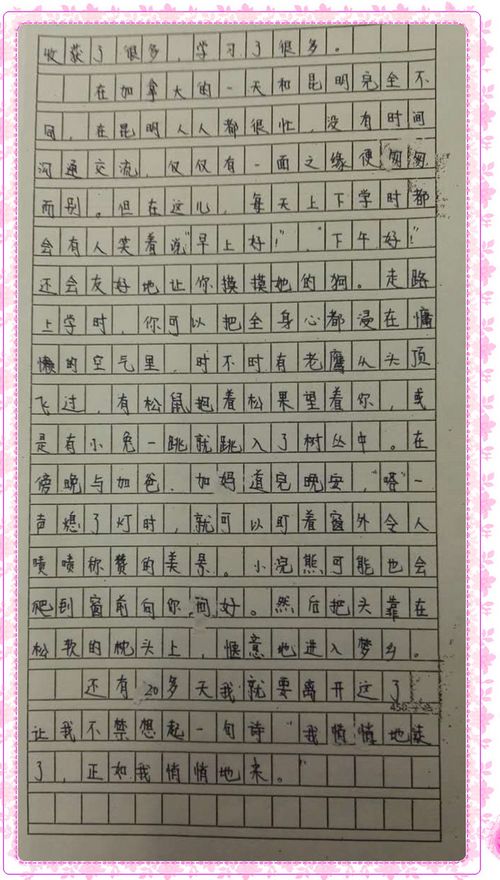 收获了很多，学习了很多。
在加拿大的一天和昆明完全不
同，在昆明人人都很忙，没有时间
沟通交流，仅仅有一面之缘便匆匆
而别。但在这儿，每天上下学时都
会有人笑着说"早上好！"，"下午好！"
还会友好地让你摸摸她的狗。走路
上学时，你可以把全身心都浸在慵
懒的空气里，时不时有老鹰从头顶
飞过，有松鼠抱着松果望着你，或
是有小兔一跳就跳入了树丛中。在
傍晚与加爸、加妈道完晚安，"嗒"一
声熄了灯时，就可以盯着窗外令人
啧啧称赞的美景。小浣熊可能也会
爬到窗前向你问好。然后把头靠在
松软的枕头上，惬意地进入梦乡。
还有20多天我就要离开这了
450
让我不禁想起一句诗"我悄悄地走
了，正如我悄悄地来。"